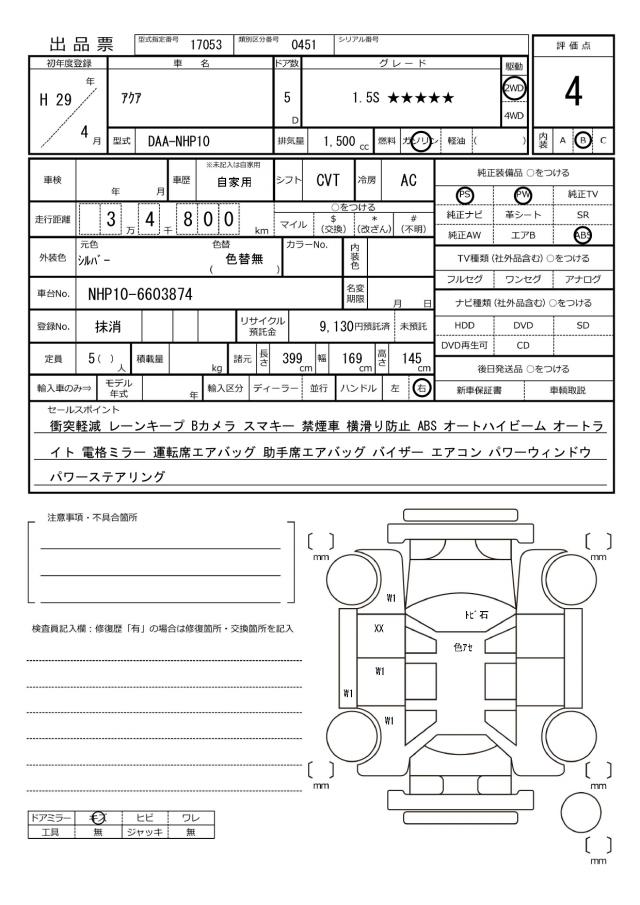 出品票 型式指定番号 17053 類別区分番号 0451 シリアル番号
評価点
4
初年度登録 車名 ドア数 グレード 駆動
H 29 年 4 月 アクア 5 D 1.5S ★★★★★ 2WD 4WD
型式 DAA-NHP10 排気量 1,500 cc 燃料 ガソリン 軽油 ( ) 内装 A B C
車検 年 月 車歴 ※未記入は自家用 自家用 シフト CVT 冷房 AC
走行距離 3 万 4 千 8 0 0 km ○をつける
マイル $ (交換) * (改ざん) # (不明)
外装色 元色 シルバー 色替 ( 色替無 ) カラーNo. 内装色
車台No. NHP10-6603874 名変期限 月 日
登録No. 抹消 リサイクル預託金 9,130円預託済 未預託
定員 5( ) 人 積載量 kg 諸元 長さ 399 cm 幅 169 cm 高さ 145 cm
輸入車のみ⇒ モデル年式 年 輸入区分 ディーラー 並行 ハンドル 左 右
純正装備品 ○をつける
PS PW 純正TV
純正ナビ 革シート SR
純正AW エアB ABS
TV種類 (社外品含む) ○をつける
フルセグ ワンセグ アナログ
ナビ種類 (社外品含む) ○をつける
HDD DVD SD
DVD再生可 CD
後日発送品 ○をつける
新車保証書 車輌取説
セールスポイント
衝突軽減 レーンキープ Bカメラ スマキー 禁煙車 横滑り防止 ABS オートハイビーム オートラ
イト 電格ミラー 運転席エアバッグ 助手席エアバッグ バイザー エアコン パワーウィンドウ
パワーステアリング
注意事項・不具合箇所
検査員記入欄：修復歴「有」の場合は修復箇所・交換箇所を記入
[ ] mm
[ ] mm
W1
トビ石
XX
色アセ
W1
W1
W1
[ ] mm
[ ] mm
[ ] mm
ドアミラー キズ ヒビ ワレ
工具 無 ジャッキ 無